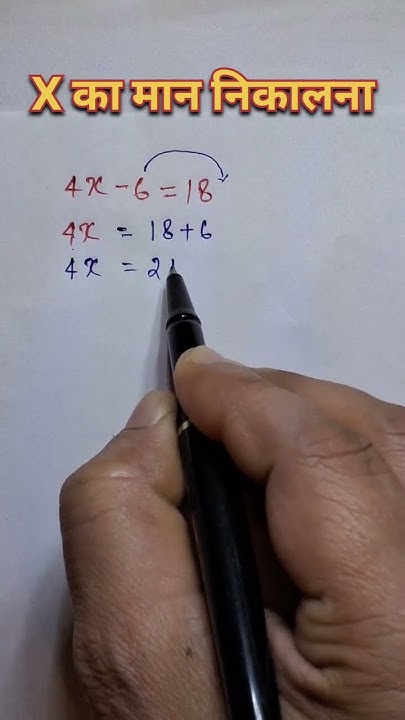 X का मान निकालना
4x - 6 = 18
4x = 18 + 6
4x = 2